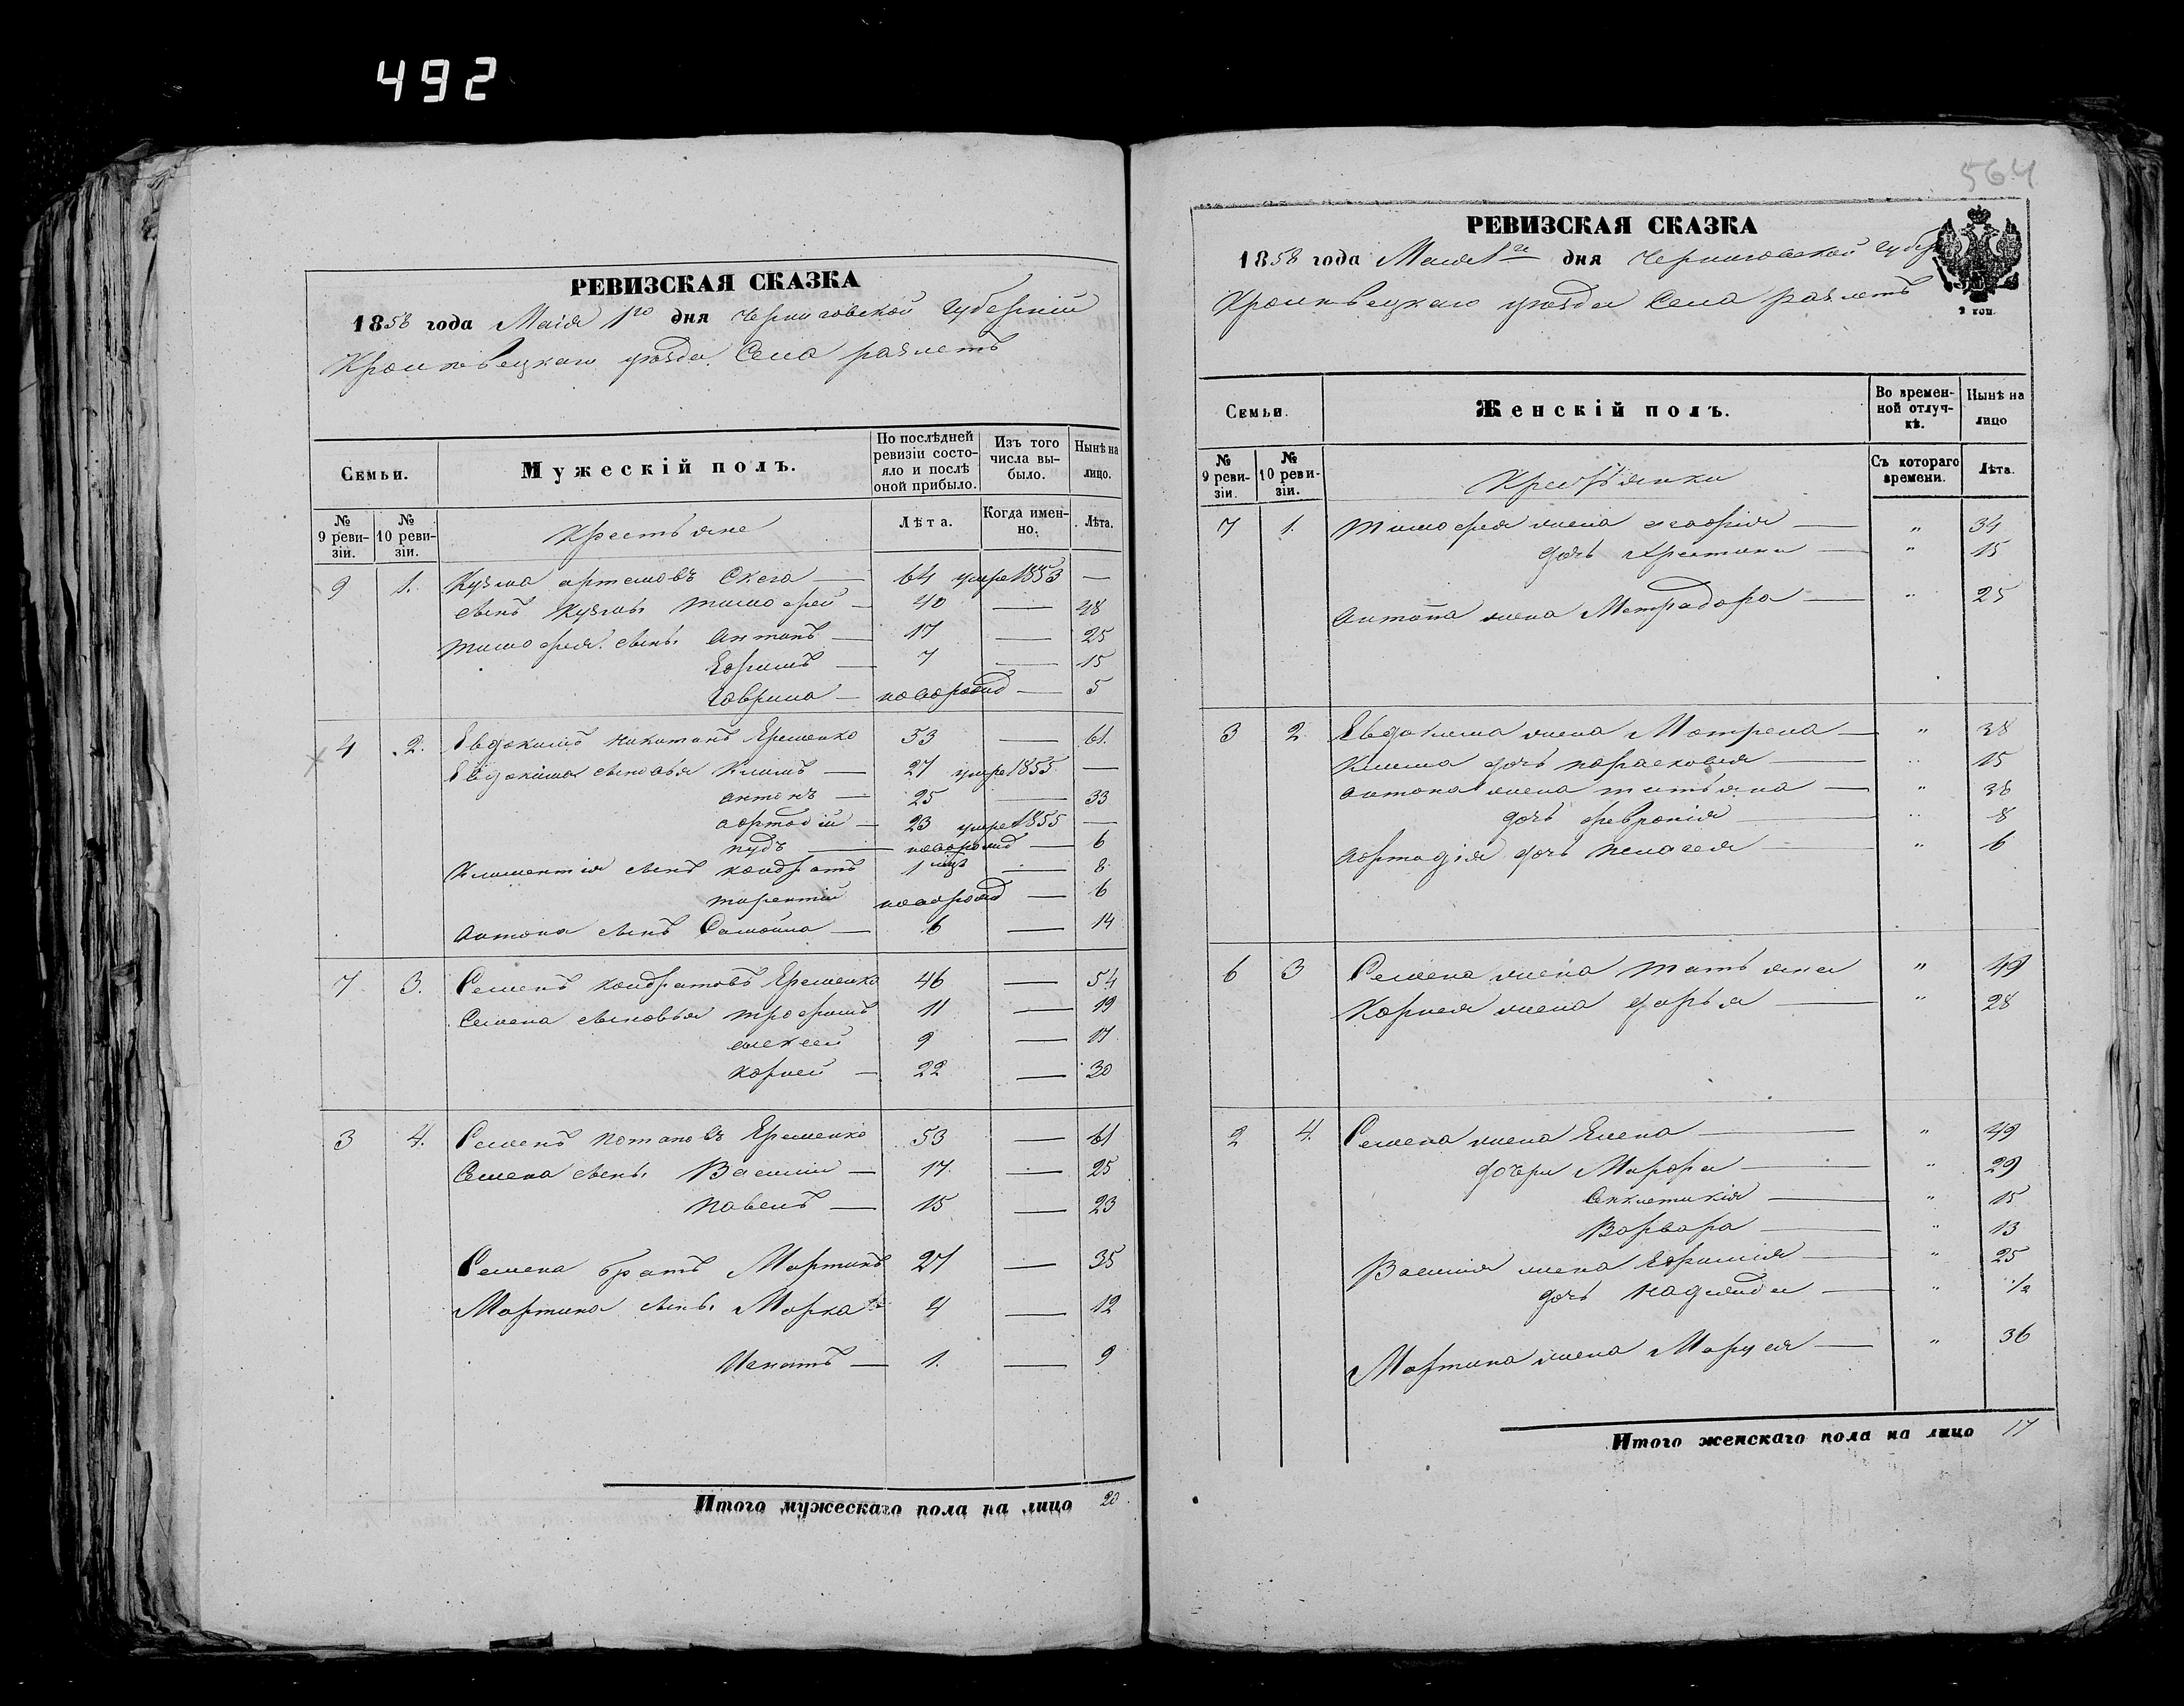 492
РЕВИЗСКАЯ СКАЗКА
1858 года Маія 1го дня Черниговской Губерніи
Кролевецкаго уѣзда Села
Семьи.
Мужескій полъ.
По послѣдней ревизіи состояло и послѣ оной прибыло.
Изъ того числа выбыло.
Нынѣ на лицо.
№ 9 ревизіи.
№ 10 ревизіи.
Крестьяне
Лѣта.
Когда именно.
Лѣта.
9 1. Кузма артемовъ Скега — 64 умре 1853 —
сынъ Кузмы тимофей — 40 — 48
тимофея сынъ антонъ — 17 — 25
Ефимъ — 7 — 15
Гаврила — новорожд — 5
4 2. Евдокимъ никитинъ Яременко 53 — 61.
Евдокима сыновья Климъ — 27 умре 1855 —
антонъ — 25 — 33
23 умре 1855 —
пудъ — новорожд — 6
Климентія сынъ кондратъ 1 мцъ — 8
терентій новорожд — 6
антона сынъ Самойла — 6 — 14
7 3. Семенъ кондратовъ Яременко 46 — 54
Семена сыновья трофимъ 11 — 19
алексей 9 — 17
корней — 22 — 30
3 4. Семенъ потаповъ Яременко 53 — 61
Семена сынъ Василій — 17. — 25
павелъ — 15 — 23
Семена братъ Мартинъ 27 — 35
Мартина сынъ Марка 4 — 12
Игнатъ — 1. — 9
Итого мужескаго пола на лицо 20.
564
РЕВИЗСКАЯ СКАЗКА
1858 года Маія 1го дня Черниговской Губер
Кролевецкаго уѣзда Села
2 коп.
Семьи.
Женскій полъ.
Во временной отлучкѣ.
Нынѣ на лицо
№ 9 ревизіи.
№ 10 ревизіи.
Крестьянки
Съ котораго времени.
Лѣта.
7 1. Тимофея жена — " 34
дочь Христина — " 15
антона жена Метрадора — " 25
3 2 Евдокима жена Мотрена — " 38
Клима дочь парасковия — " 15
антона жена татьяна — " 38
дочь февронія — " 8
дочь пелагея — " 6
6 3 Семена жена татьяна " 49
Корнея жена дарья — " 28
2 4. Семена жена Елена — " 49
дочери Марфа — " 29
Синклетикія — " 15
Варвара — " 13
Василія жена Ефимія — " 25
дочь надежда — " 1/2
Мартина жена Марія — " 36
Итого женскаго пола на лицо 17